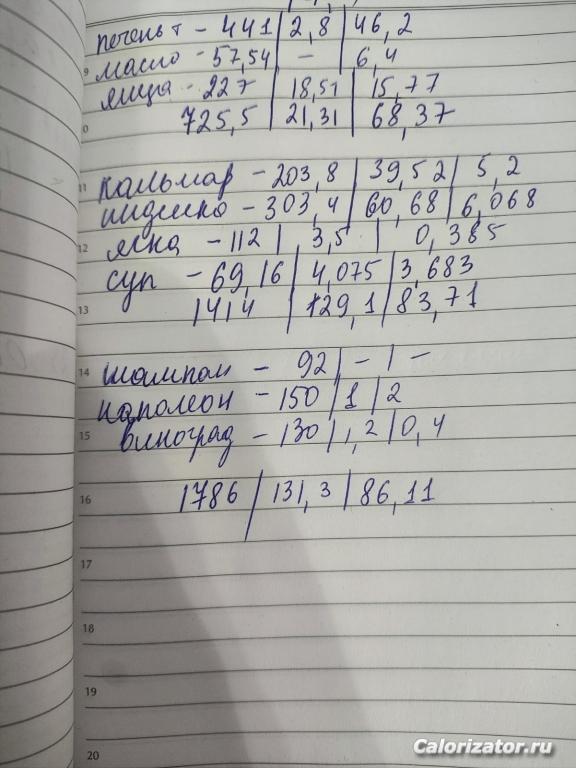 печень т - 441 | 2,8 | 46,2
9 масло - 57,54 | - | 6,4
яица - 227 | 18,51 | 15,77
0 725,5 | 21,31 | 68,37
11 кальмар - 203,8 | 39,52 | 5,2
индейка - 303,4 | 60,68 | 6,068
12 - 112 | 3,5 | 0,385
суп - 69,16 | 4,075 | 3,683
13 1414 | 129,1 | 83,71
14 шампан - 92 | - | -
наполеон - 150 | 1 | 2
15 виноград - 130 | 1,2 | 0,4
16 1786 | 131,3 | 86,11
17
18
19
20
Calorizator.ru